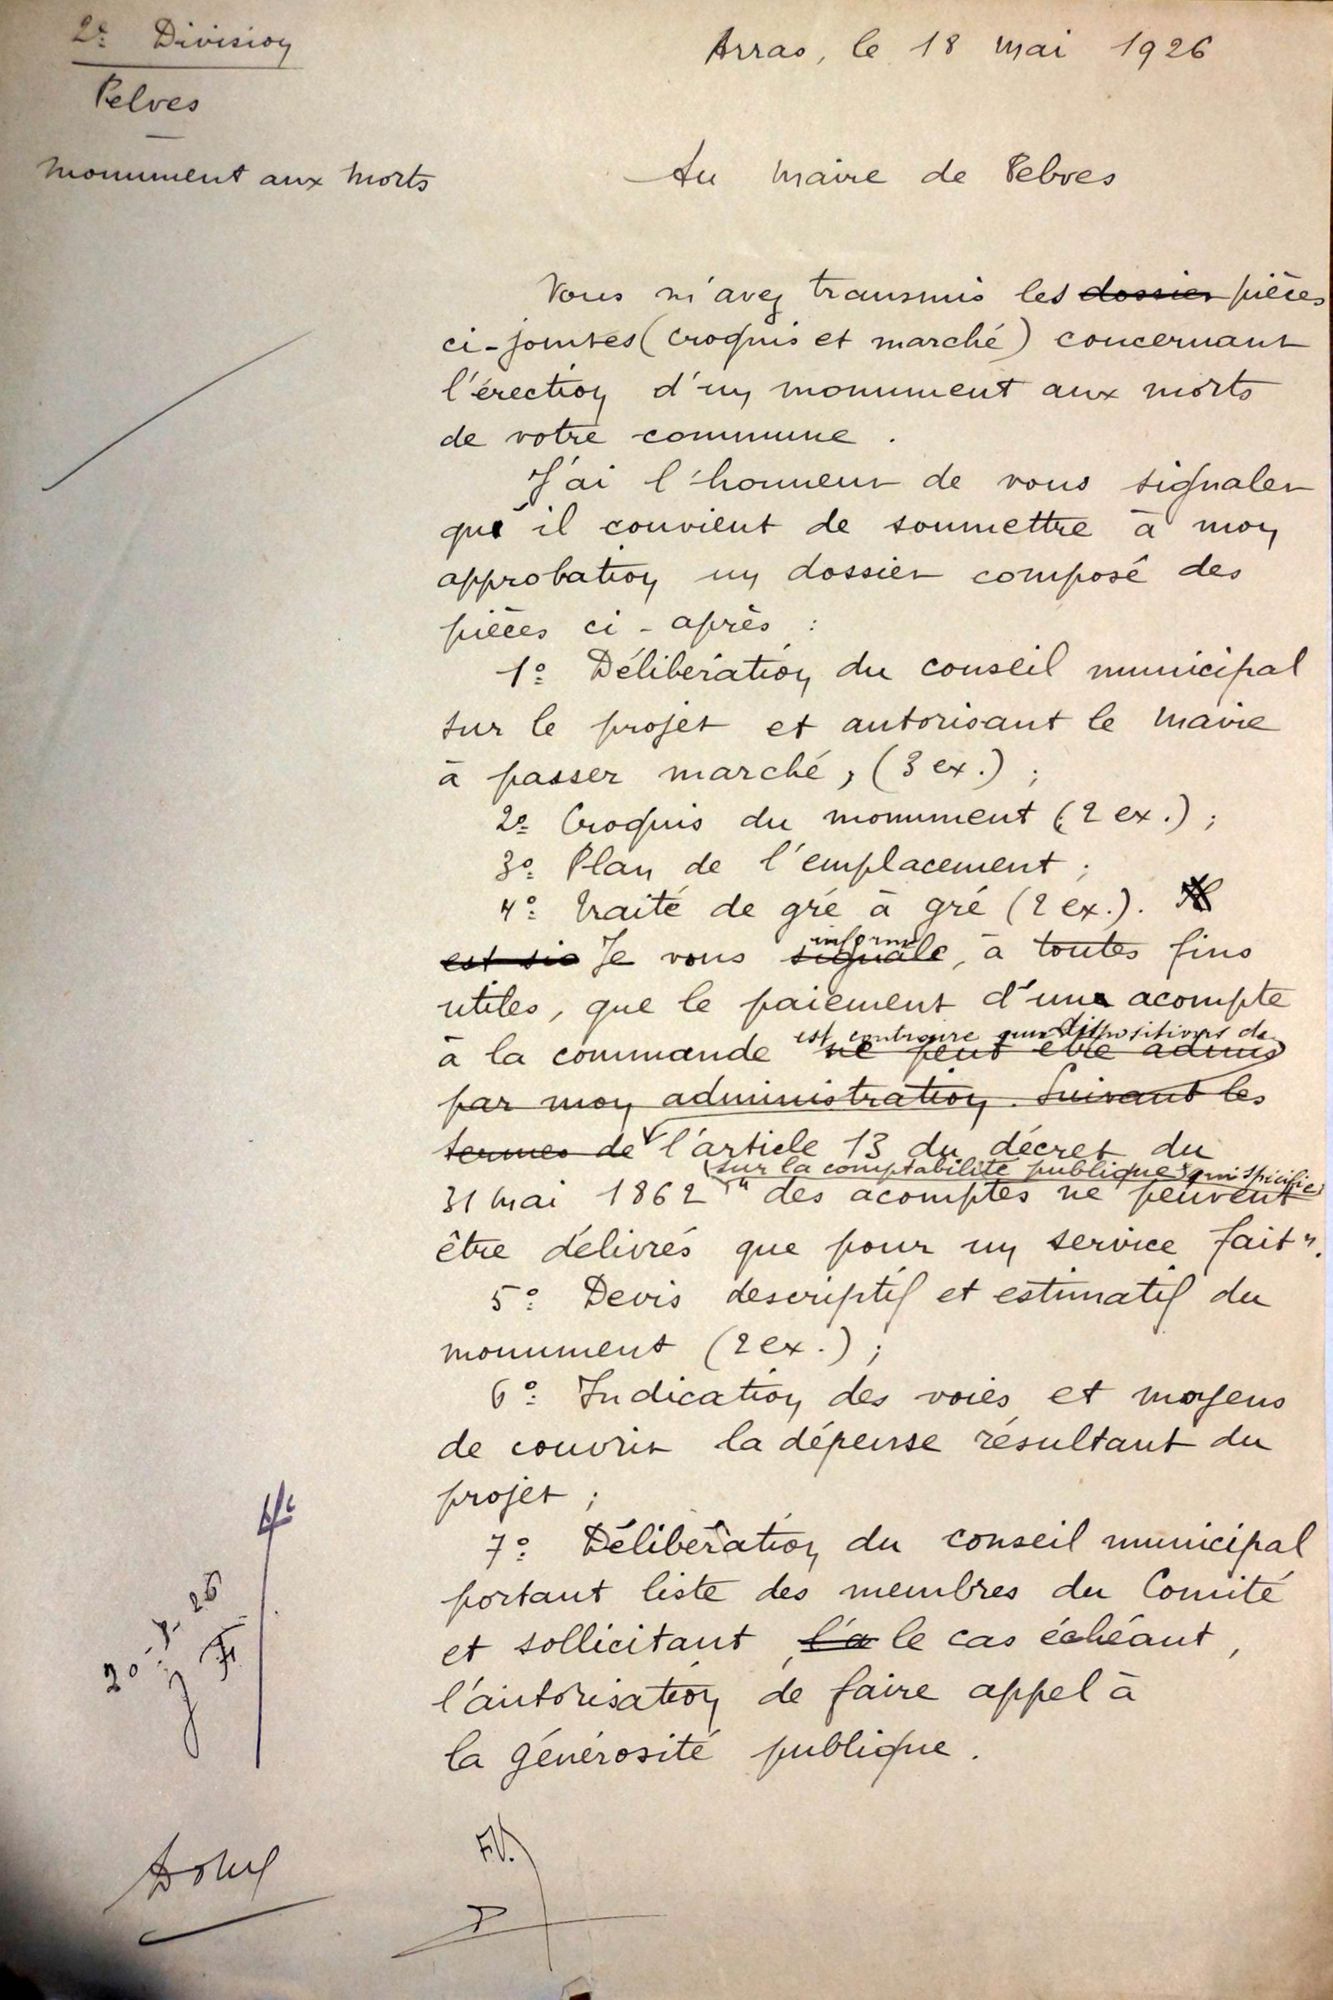 2e Division
Pelves
Monument aux Morts
Arras, le 18 Mai 1926
Au Maire de Pelves
Vous m'avez transmis les dossier pièces
ci-jointes (croquis et marché) concernant
l'érection d'un monument aux morts
de votre commune.
J'ai l'honneur de vous signaler
qu'il convient de soumettre à mon
approbation un dossier composé des
pièces ci-après :
1º Délibération du conseil municipal
sur le projet et autorisant le Maire
à passer marché, (3 ex.) ;
2º Croquis du monument (2 ex.) ;
3º Plan de l'emplacement ;
4º Traité de gré à gré (2 ex.).
informe
est Je vous signale, à toutes fins
utiles, que le paiement d'un acompte
est contraire aux dispositions de
à la commande ne peut être admis
par mon administration. Suivant les
termes de l'article 13 du décret du
sur la comptabilité publique qui spécifie
31 Mai 1862 "des acomptes ne peuvent
être délivrés que pour un service fait".
5º Devis descriptif et estimatif du
monument (2 ex.) ;
6º Indication des voies et moyens
de couvrir la dépense résultant du
projet ;
7º Délibération du conseil municipal
portant liste des membres du Comité
et sollicitant, l'a le cas échéant,
l'autorisation de faire appel à
la générosité publique.
F.V.